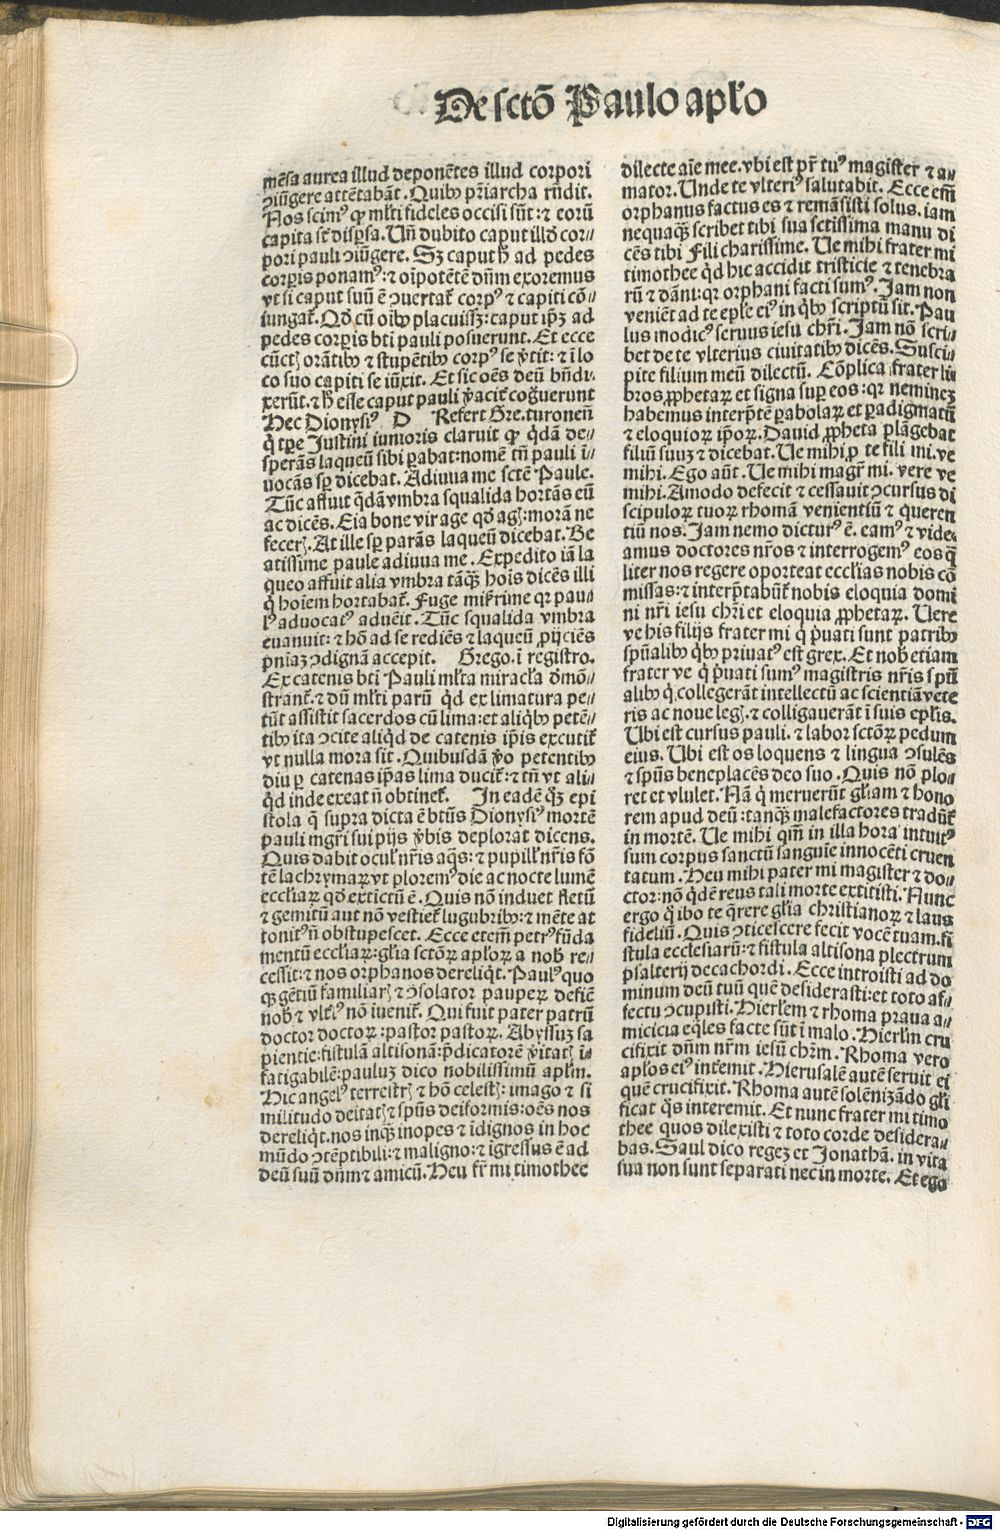 De sctō Paulo apl'o
mēsa aurea illud deponētes illud corpori
ɔiūgere attētabāt. Quibꝰ pr̄iarcha rn̄dit.
Nos scimꝰ qꝫ ml'ti fideles occisi sūt: ⁊ eorū
capita sr̄ disp̱sa. Un̄ dubito caput illd̓ cor⸗
pori pauli ɔiūgere. Sꝫ caput h̓ ad pedes
corp̱is ponamꝰ: ⁊ oīpotētē dn̄m exoremus
vt si caput suū ē ɔuertat̄ corpꝰ ⁊ capiti cō⸗
iungat̄. Qd̓ cū oībꝰ placuissꝫ: caput ip̄ꝫ ad
pedes corp̱is bt̄i pauli posuerunt. Et ecce
cūctꝭ orātibꝰ ⁊ stupētibꝰ corpꝰ se v̓tit: ⁊ ī lo
co suo capiti se iūxit. Et sic oēs deū bn̄di⸗
xerūt. ⁊ h̓ esse caput pauli v̓aciť cog̓uerunt
Hec Dionysiꝰ D Refert Gre. turonen̄
q̓ tp̱e Justini iunioris claruit qꝫ q̓dā de⸗
sperās laqueū sibi p̱abat: nomē tn̄ pauli ī⸗
uocās sp̱ dicebat. Adiuua me sctē Paule.
Tūc affuit q̓dā vmbra squalida hortās eū
ac dicēs. Eia bone vir age qd̓ agꝭ: morā ne
fecerꝭ. At ille sp̱ parās laqueū dicebat. Be
atissime paule adiuua me. Expedito iā la
queo affuit alia vmbra tāqꝫ hoīs dicēs illi
q̓ hoīem hortabat̄. Fuge mis̓rime qr pau⸗
lꝰ aduocatꝰ aduēit. Tūc squalida vmbra
euanuit: ⁊ hō ad se rediēs ⁊ laqueū ꝓijciēs
pn̄iaꝫ ɔdignā accepit. Grego. ī registro.
Ex catenis bt̄i Pauli ml'ta miracl'a d̓mō⸗
strant̄. ⁊ dū ml'ti parū q̓d ex limatura pe⸗
tūt assistit sacerdos cū lima: et aliq̓bꝰ petē⸗
tibꝰ ita ɔcite aliq̓d de catenis ip̄is excutit̄
vt nulla mora sit. Quibusdā v̓o petentibꝰ
diu p̱ catenas ip̄as lima ducit̄: ⁊ tn̄ vt ali⸗
q̓d inde exeat n̄ obtinet̄. In eadē qꝫ epi
stola q̄ supra dicta ē btū̄s Dionysiꝰ mortē
pauli mgr̄i sui pijs v̓bis deplorat dicens.
Quis dabit ocul' nr̄is aq̄s: ⁊ pupill' nr̄is fō
tē lachrymaꝝ vt ploremꝰ die ac nocte lumē
eccl'iaꝝ qd̓ extictū ē. Quis nō induet fletū
⁊ gemitū aut nō vestiet̄ lugubribꝰ: ⁊ mēte at
tonitꝰ n̄ obstupescet. Ecce etem̄ petrꝰ fūda
mentū eccl'iaꝝ: gl'ia sctōꝝ apl'oꝝ a nob̓ re⸗
cessit: ⁊ nos orphanos dereliq̓t. Paulꝰ quo
qꝫ gētiū familiarꝭ ⁊ ɔsolator pauperꝝ defic̄
nob̓ ⁊ vlt̓iꝰ nō iuenit̄. Qui fuit pater patrū
doctor doctoꝝ: pastor pastoꝝ. Abyssuꝫ sa
pientie: fistulā altisonā: p̄dicatorē v̓itatꝭ ī⸗
fatigabilē: pauluꝫ dico nobilissimū apl'm.
Hic angelꝰ terrestrꝭ ⁊ hō celestꝭ: imago ⁊ si
militudo deitatꝭ ⁊ spūs deiformis: oēs nos
dereliq̓t. nos inqꝫ inopes ⁊ īdignos in hoc
mūdo ɔtēptibili: ⁊ maligno: ⁊ īgressus ē ad
deū suū dn̄m ⁊ amicū. Heu fr̄ mi timothee
dilecte aīe mee. vbi est pr̄ tuꝰ magister ⁊ a⸗
mator. Unde te vlteriꝰ salutabit. Ecce em̄
orphanus factus es ⁊ remāsisti solus. iam
nequaqꝫ scribet tibi sua sctissima manu di
cēs tibi Fili charissime. Ue mihi frater mi
timothee q̓d hic accidit tristicie ⁊ tenebra
rū ⁊ dāni: qr orphani facti sumꝰ. Jam non
veniēt ad te epl'e eiꝰ in q̓bꝰ scriptū sit. Pau
lus modicꝰ seruus iesu chr̄i. Jam nō scri⸗
bet de te vlterius ciuitatibꝰ dicēs. Susci⸗
pite filium meū dilectū. Cōplica frater li⸗
bros ꝓphetaꝝ et signa sup̱ eos: qr neminez
habemus interp̄tē p̱abolaꝝ et p̱adigmatū
⁊ eloquioꝝ ip̄oꝝ. Dauid ꝓpheta plāgebat
filiū suuꝫ ⁊ dicebat. Ue mihi ꝓ te fili mi. ve
mihi. Ego aūt. Ue mihi magr̄ mi. vere ve
mihi. Amodo defecit ⁊ cessauit ɔcursus di
scipuloꝝ tuoꝝ rhomā venientiū ⁊ queren
tiū nos. Jam nemo dicturꝰ ē. eamꝰ ⁊ vide⸗
amus doctores nr̄os ⁊ interrogemꝰ eos q̄
liter nos regere oporteat eccl'ias nobis cō
missas: ⁊ interp̄tabūt̄ nobis eloquia domi
ni nr̄i iesu chr̄i et eloquia ꝓphetaꝝ. Uere
ve his filijs frater mi q̓ p̓uati sunt patribꝰ
spūalibꝰ q̓bꝰ priuatꝰ est grex. Et nob̓ etiam
frater ve q̓ p̓uati sumꝰ magistris nr̄is spū
alibꝰ q̓ collegerāt intellectū ac scientiā vete
ris ac noue legꝭ. ⁊ colligauerāt ī suis epl'is.
Ubi est cursus pauli. ⁊ labor sctōꝝ pedum
eius. Ubi est os loquens ⁊ lingua ɔsulēs
⁊ spūs beneplacēs deo suo. Quis nō plo⸗
ret et vlulet. Nā q̓ meruerūt gl'iam ⁊ hono
rem apud deū: tanqꝫ malefactores tradūt̄
in mortē. Ue mihi qm̄ in illa hora intuitꝰ
sum corpus sanctū sanguīe innocēti cruen
tatum. Heu mihi pater mi magister ⁊ do⸗
ctor: nō q̓dē reus tali morte extitisti. Nunc
ergo q̓ ibo te q̄rere gl'ia christianoꝝ ⁊ laus
fideliū. Quis ɔticescere fecit vocē tuam. fi
stula ecclesiarū: ⁊ fistula altisona plectrum
psalterij decachordi. Ecce introisti ad do
minum deū tuū quē desiderasti: et toto af⸗
fectu ɔcupisti. Hierl'em ⁊ rhoma praua a⸗
micicia eq̄les facte sūt ī malo. Hierl'm cru
cifixit dn̄m nr̄m iesū chr̄m. Rhoma vero
apl'os eiꝰ intemit. Hierusalē autē seruit ei
quē crucifixit. Rhoma autē solēnizādo gl'i
ficat q̓s interemit. Et nunc frater mi timo
thee quos dilexisti ⁊ toto corde desidera⸗
bas. Saul dico regeꝫ et Jonathā. in vita
sua non sunt separati nec in morte. Et ego
Digitalisierung gefördert durch die Deutsche Forschungsgemeinschaft - DFG